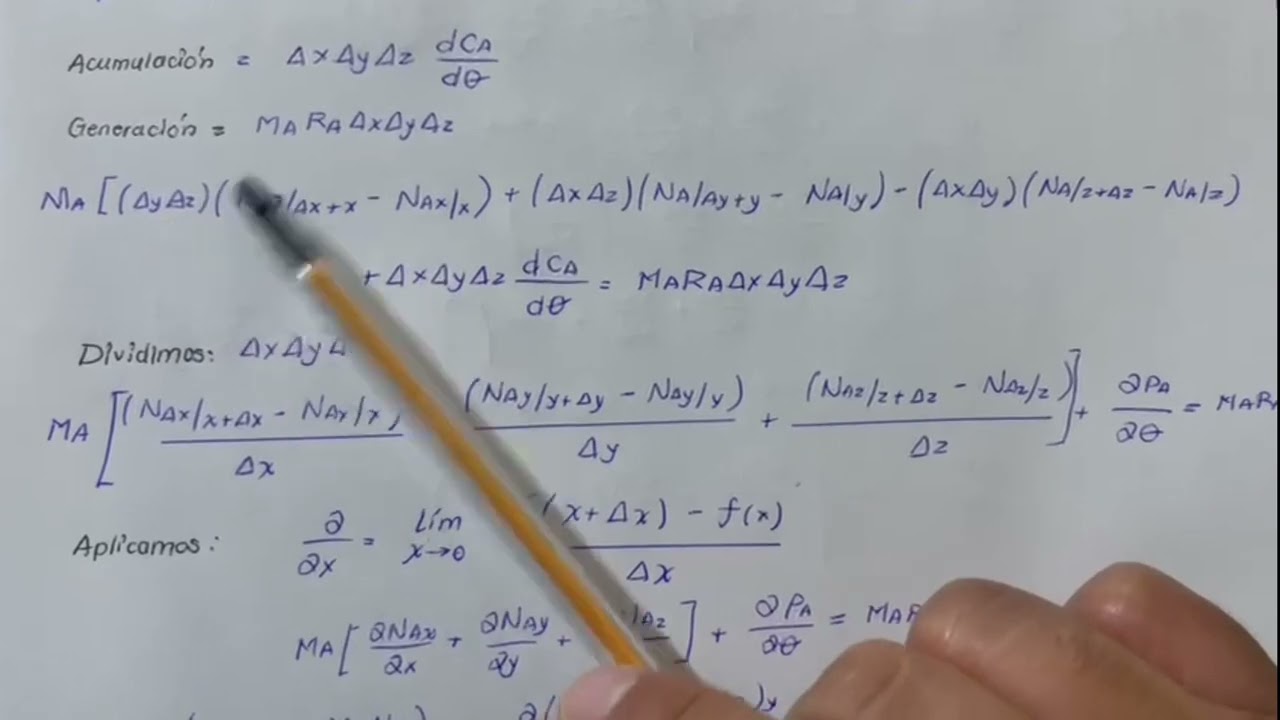 Acumulación = ΔxΔyΔz dCA/dθ
Generación = MA RA ΔxΔyΔz
MA [(ΔyΔz)( /Δx+x - NAx/x) + (ΔxΔz)(NA/Δy+y - NA/y) - (ΔxΔy)(NA/z+Δz - NA/z)
+ ΔxΔyΔz dCA/dθ = MARAΔxΔyΔz
Dividimos: ΔxΔy
MA [(NAx/x+Δx - NAx/x) / Δx (NAy/y+Δy - NAy/y) / Δy + (NAz/z+Δz - NAz/z) / Δz] + ∂PA/∂θ = MAR
Aplicamos: ∂/∂x = lím x→0 (x+Δx) - f(x) / Δx
MA [∂NAx/∂x + ∂NAy/∂y + Az ] + ∂PA/∂θ = MAR